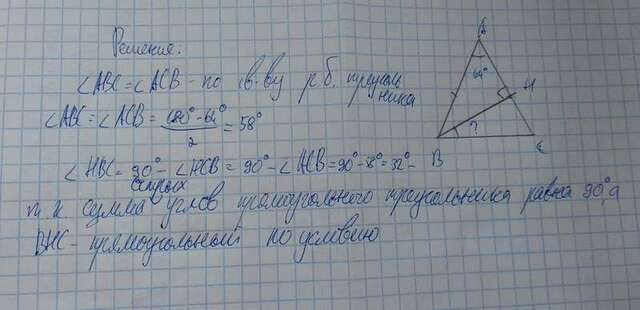 Решения:
∠ABC = ∠ACB - по св-ву р.б. треуголь
ника
∠ABC = ∠ACB = (180° - 64°)/2 = 58°
∠HBC = 90° - ∠HCB = 90° - ∠ACB = 90° - 58° = 32° -
острых
т.к сумма углов прямоугольного треугольника равна 90°, а
BHC - прямоугольный по условию
64°
H
?
B
C